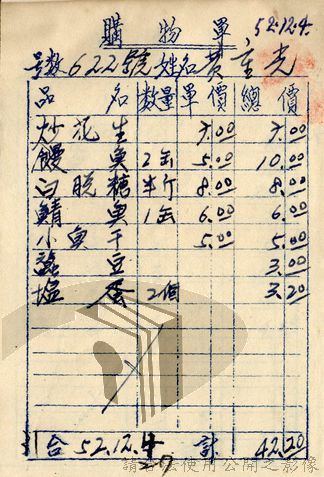 購物單 52.12.4.
号数622號 姓名黄童光
品名 数量 單價 總價
炒花生 7.00 7.00
鰻魚 2缶 5.00 10.00
白脱糖 半斤 8.00 8.00
鯖魚 1缶 6.00 6.00
小魚干 5.00 5.00
豆 3.00
塩蛋 2個 3.20
合 52.12.4 計 42.20
請合法使用公開之影像